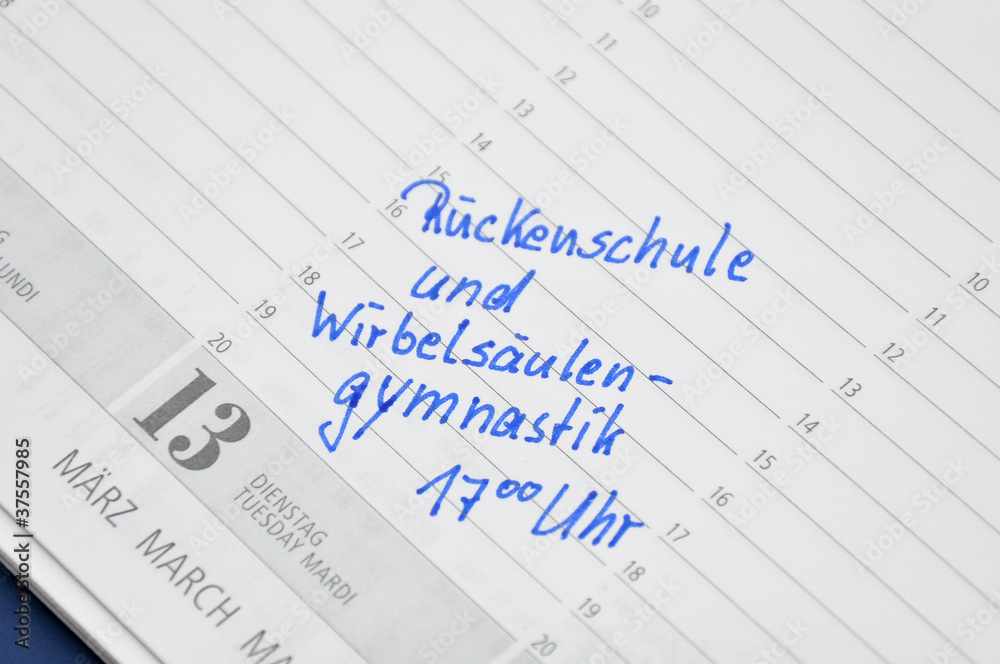 10
11
12
13
14
15
16
17
18
19
20
Rückenschule
und
Wirbelsäulen-
gymnastik
17⁰⁰ Uhr
10
11
12
13
14
15
16
17
18
19
20
LUNDI
13
DIENSTAG
TUESDAY MARDI
MÄRZ MARCH
Adobe Stock | #37557985